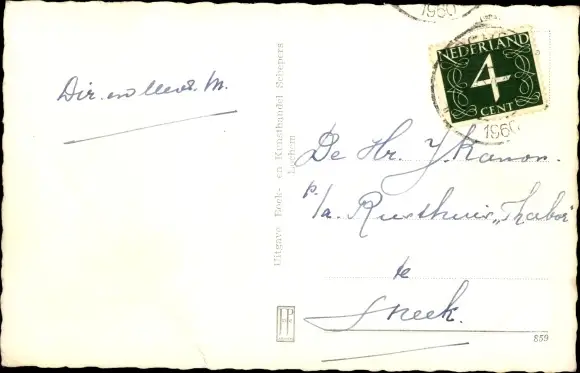 1960
NEDERLAND
4
CENT
1960
Dir. en Mevr. M.
Uitgave Boek- en Kunsthandel Schepers
Lochem
De Hr. Y. Kanon.
p/a. Rusthuis „Thabor"
te
Sneek.
859